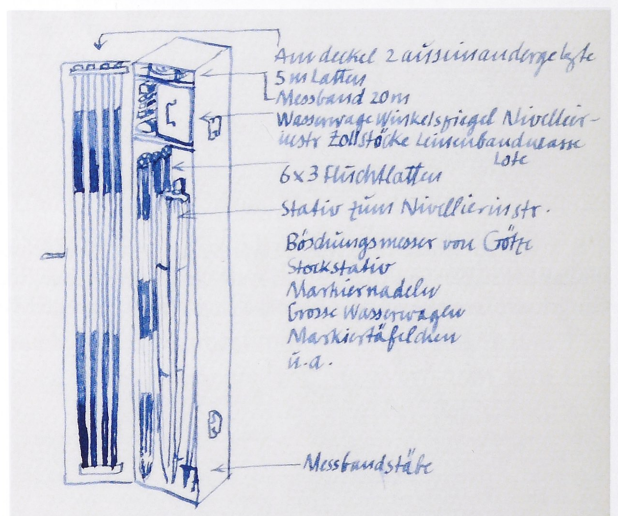 Am deckel 2 auseinandergelegte
5 m Latten
Messband 20 m
Wasserwage Winkelspiegel Nivellier-
instr Zollstöcke Leinenbandmasse
Lote
6 x 3 Fluchtlatten
Stativ zum Nivellierinstr.
Böschungsmesser von Götze
Stockstativ
Markiernadeln
Grosse Wasserwagen
Markiertäfelchen
u. a.
Messbandstäbe